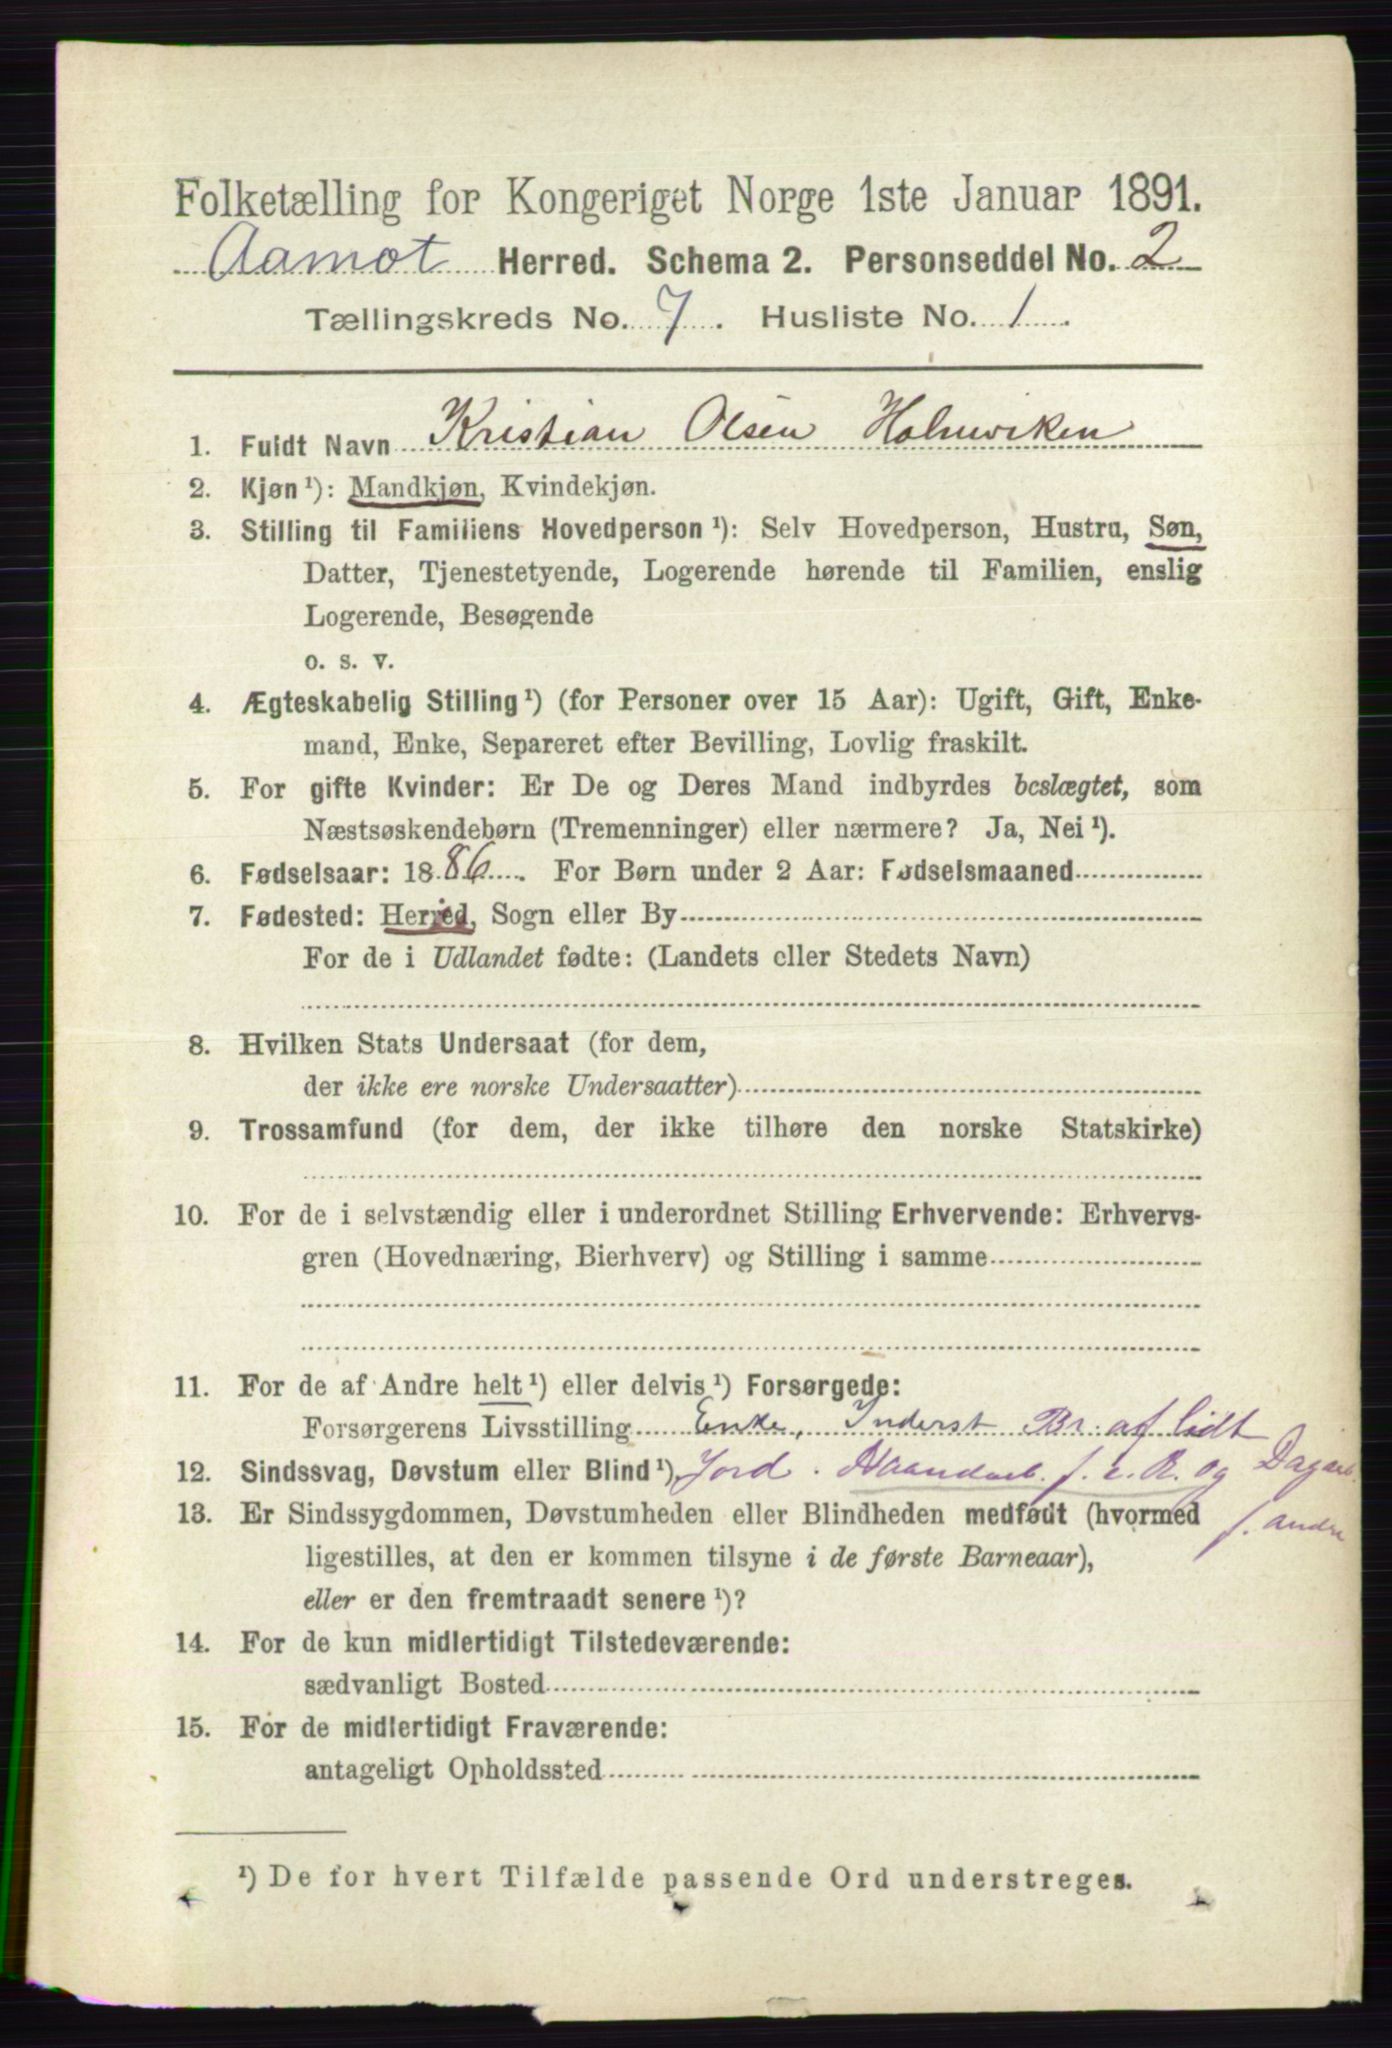 Folketælling for Kongeriget Norge 1ste Januar 1891.
Aamot Herred. Schema 2. Personseddel No. 2
Tællingskreds No. 7. Husliste No. 1.
1. Fuldt Navn Kristian Olsen Holmviken
2. Kjøn ¹): Mandkjøn, Kvindekjøn.
3. Stilling til Familiens Hovedperson ¹): Selv Hovedperson, Hustru, Søn,
Datter, Tjenestetyende, Logerende hørende til Familien, enslig
Logerende, Besøgende
o. s. v.
4. Ægteskabelig Stilling ¹) (for Personer over 15 Aar): Ugift, Gift, Enke-
mand, Enke, Separeret efter Bevilling, Lovlig fraskilt.
5. For gifte Kvinder: Er De og Deres Mand indbyrdes beslægtet, som
Næstsøskendebørn (Tremenninger) eller nærmere? Ja, Nei ¹).
6. Fødselsaar: 1886. For Børn under 2 Aar: Fødselsmaaned
7. Fødested: Herred, Sogn eller By
For de i Udlandet fødte: (Landets eller Stedets Navn)
8. Hvilken Stats Undersaat (for dem,
der ikke ere norske Undersaatter)
9. Trossamfund (for dem, der ikke tilhøre den norske Statskirke)
10. For de i selvstændig eller i underordnet Stilling Erhvervende: Erhvervs-
gren (Hovednæring, Bierhverv) og Stilling i samme
11. For de af Andre helt ¹) eller delvis ¹) Forsørgede:
Forsørgerens Livsstilling Enke, Inderst Br. af lidt
12. Sindssvag, Døvstum eller Blind ¹). Jord. Haandarb. f. e. R. og Dagarb.
13. Er Sindssygdommen, Døvstumheden eller Blindheden medfødt (hvormed f. andre
ligestilles, at den er kommen tilsyne i de første Barneaar),
eller er den fremtraadt senere ¹)?
14. For de kun midlertidigt Tilstedeværende:
sædvanligt Bosted
15. For de midlertidigt Fraværende:
antageligt Opholdssted
¹) De for hvert Tilfælde passende Ord understreges.